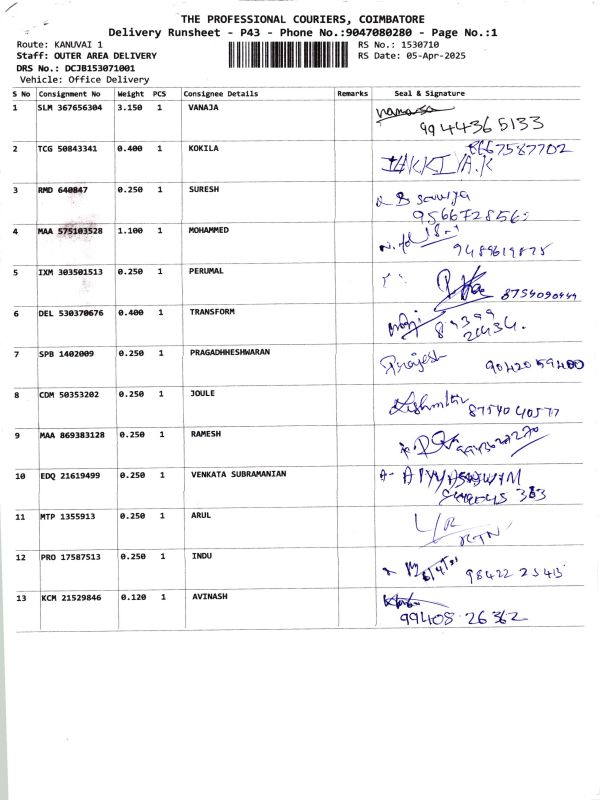 THE PROFESSIONAL COURIERS, COIMBATORE
Delivery Runsheet - P43 - Phone No.:9047080280 - Page No.:1
Route: KANUVAI 1 RS No.: 1530710
Staff: OUTER AREA DELIVERY RS Date: 05-Apr-2025
DRS No.: DCJB153071001
Vehicle: Office Delivery
S No Consignment No Weight PCS Consignee Details Remarks Seal & Signature
1 SLM 367656304 3.150 1 VANAJA
9944365133
2 TCG 50843341 0.400 1 KOKILA 8667587702
3 RMD 640847 0.250 1 SURESH
4 MAA 575103528 1.100 1 MOHAMMED
9489619875
5 IXM 303501513 0.250 1 PERUMAL
6 DEL 530370676 0.400 1 TRANSFORM
7 SPB 1402009 0.250 1 PRAGADHHESHWARAN Prajesh 9042059400
8 CDM 50353202 0.250 1 JOULE
8754040577
9 MAA 869383128 0.250 1 RAMESH
10 EDQ 21619499 0.250 1 VENKATA SUBRAMANIAN
11 MTP 1355913 0.250 1 ARUL
12 PRO 17587513 0.250 1 INDU
98422 25413
13 KCM 21529846 0.120 1 AVINASH
99408 26362